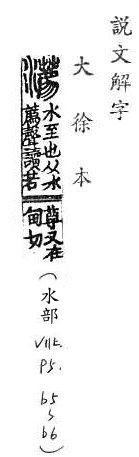 説文解字
大徐本
瀳
水至也从水
薦聲讀若
尊又在
甸切
(水部
P5.
b5
~
b6)